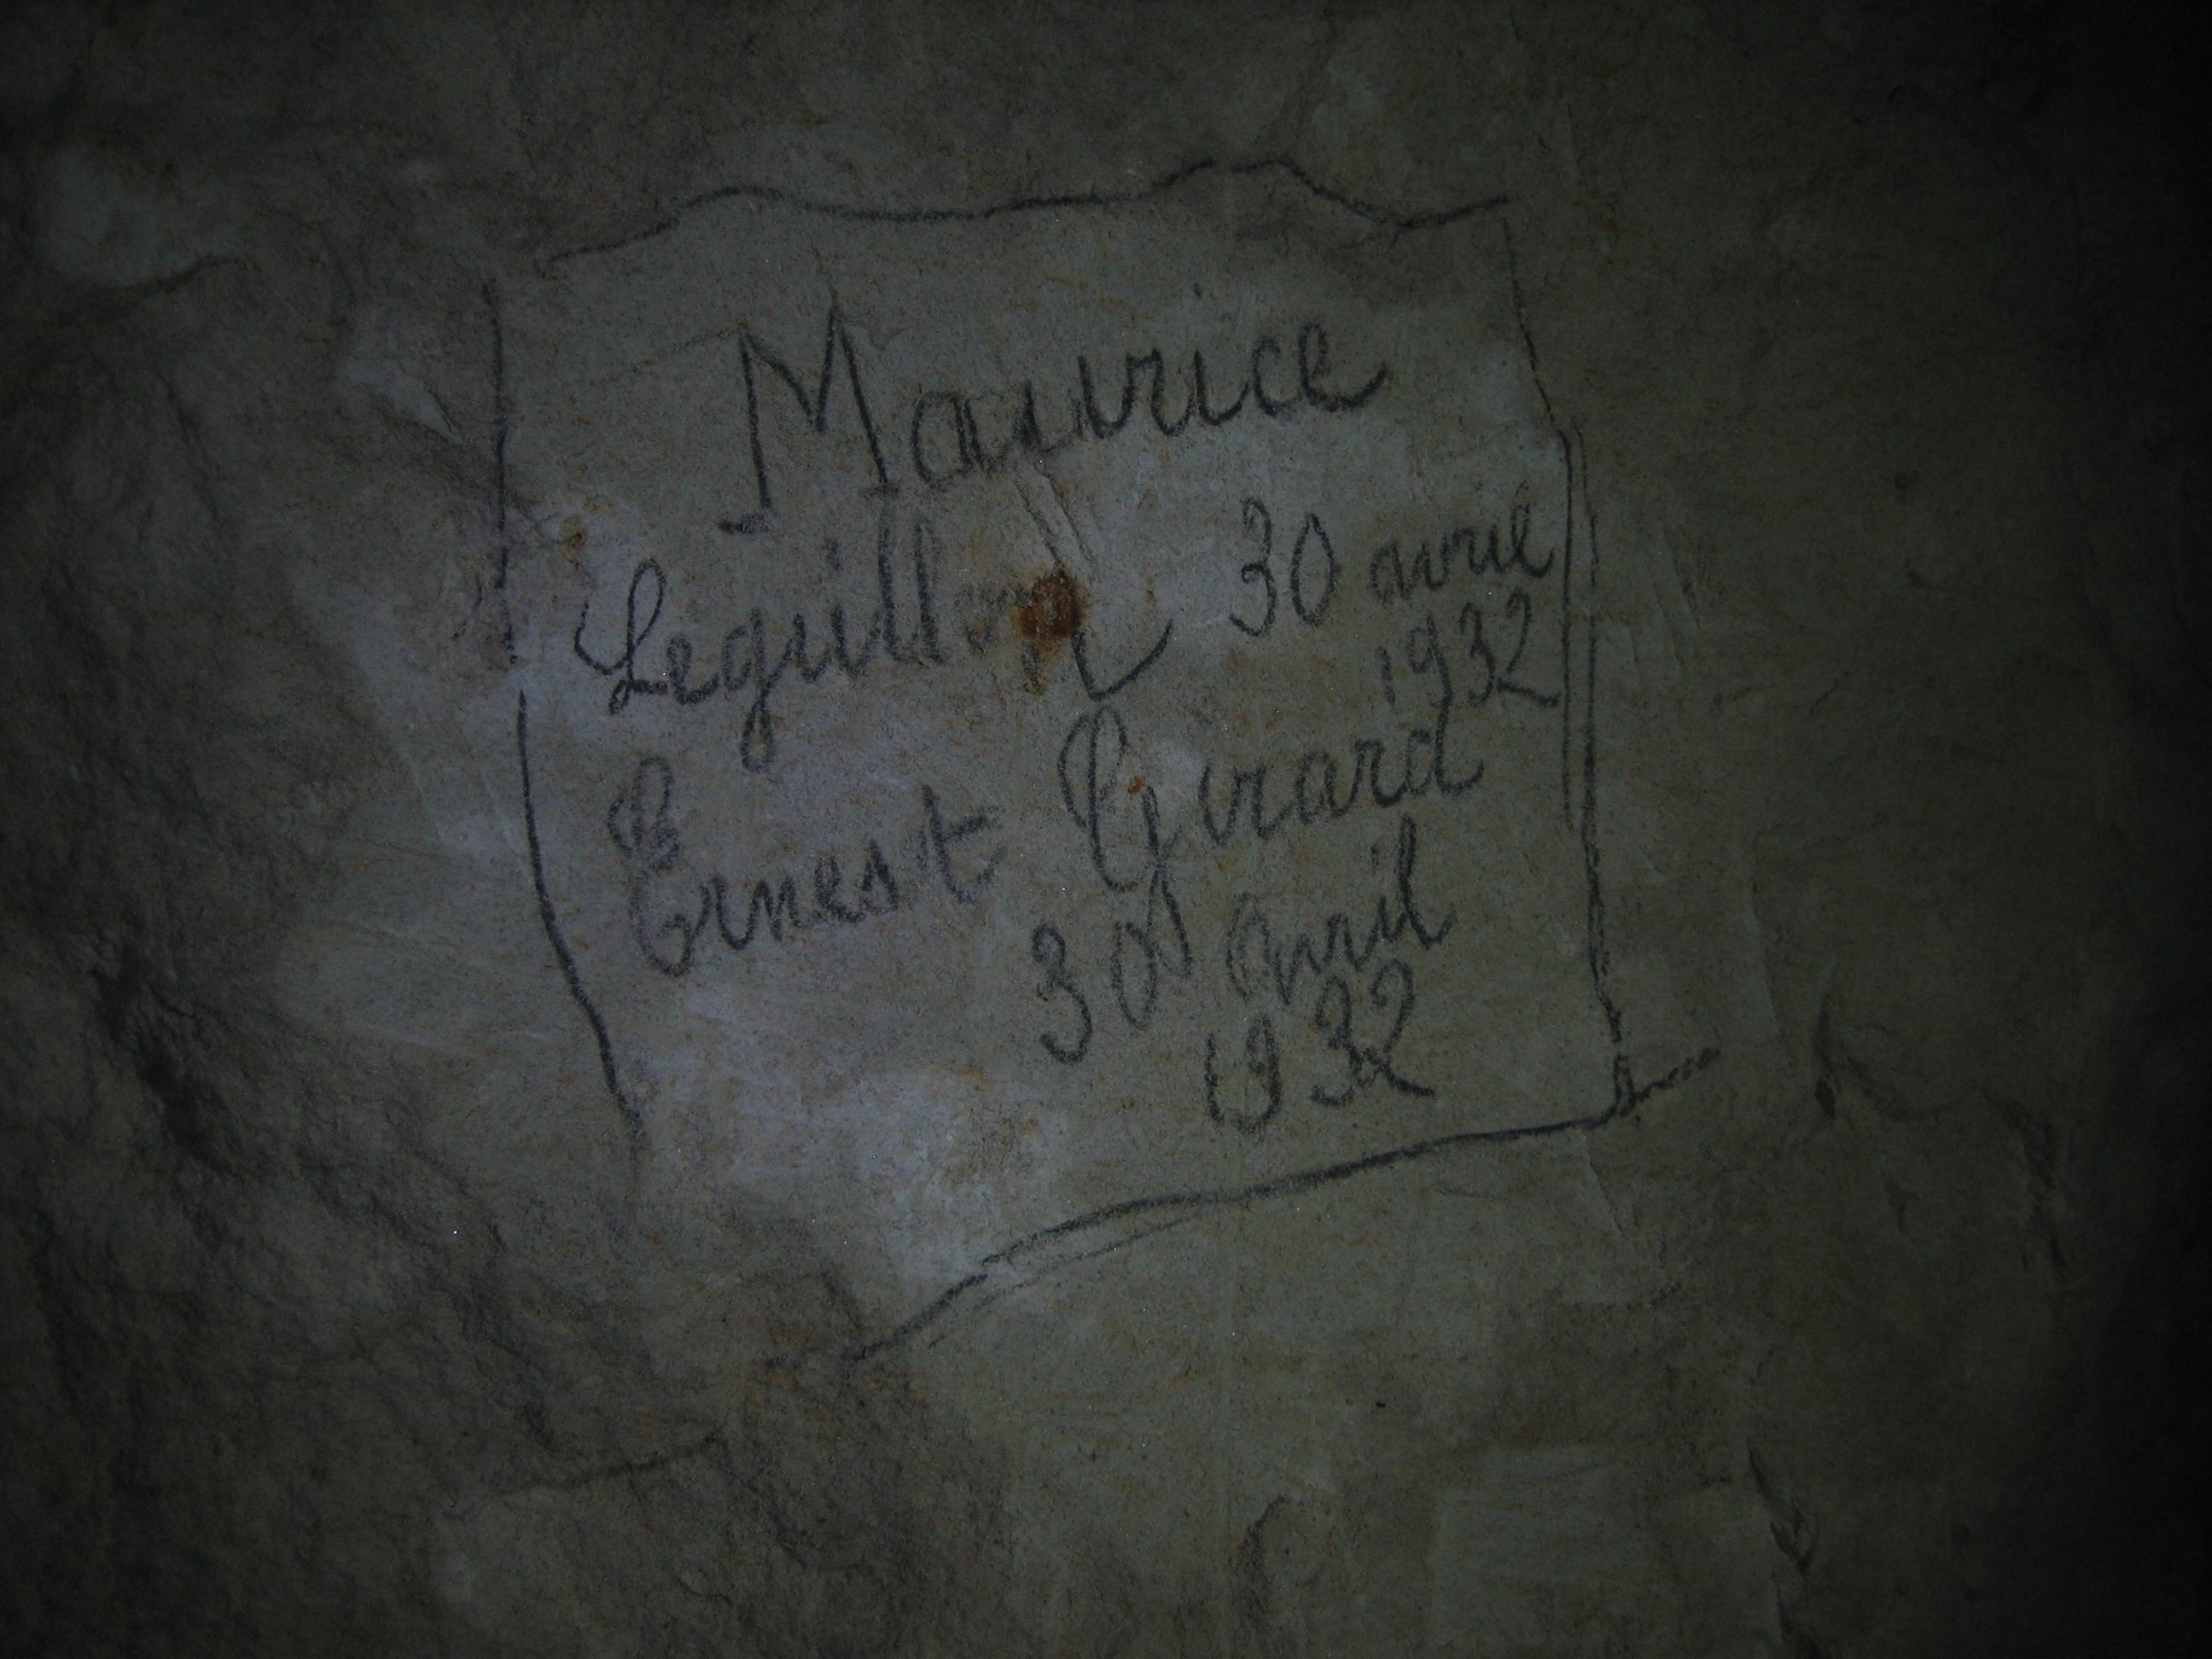 Maurice
Leguillon 30 avril
1932
Ernest Girard
30 Avril
1932